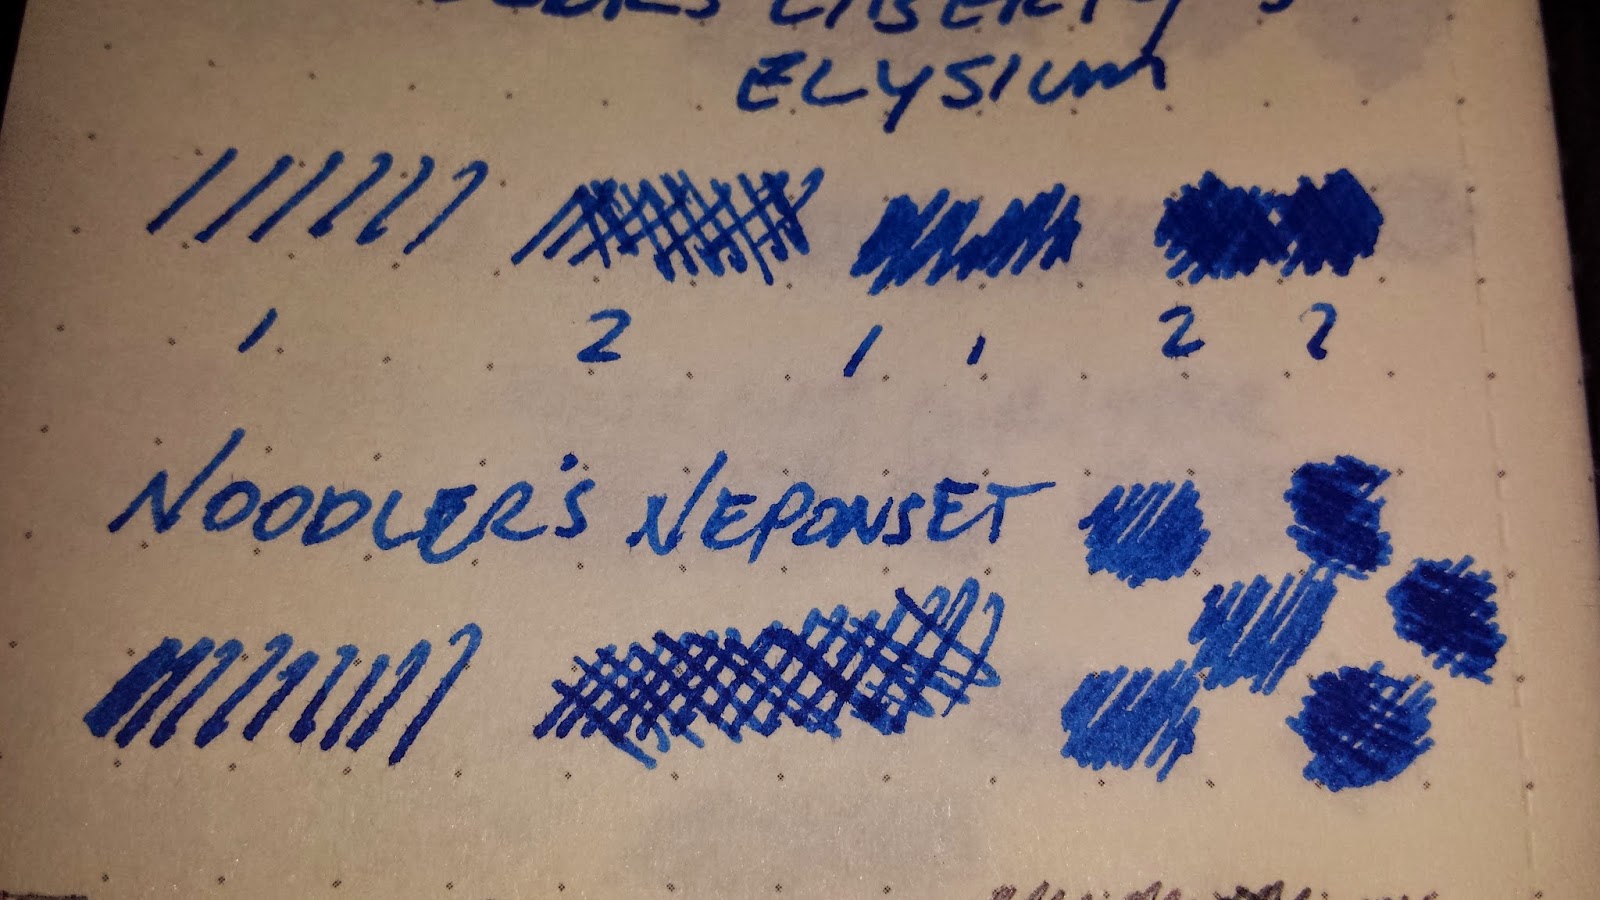 LIBERTY'S
ELYSIUM
1 2 1 1 2 2
NOODLER'S NEPONSET